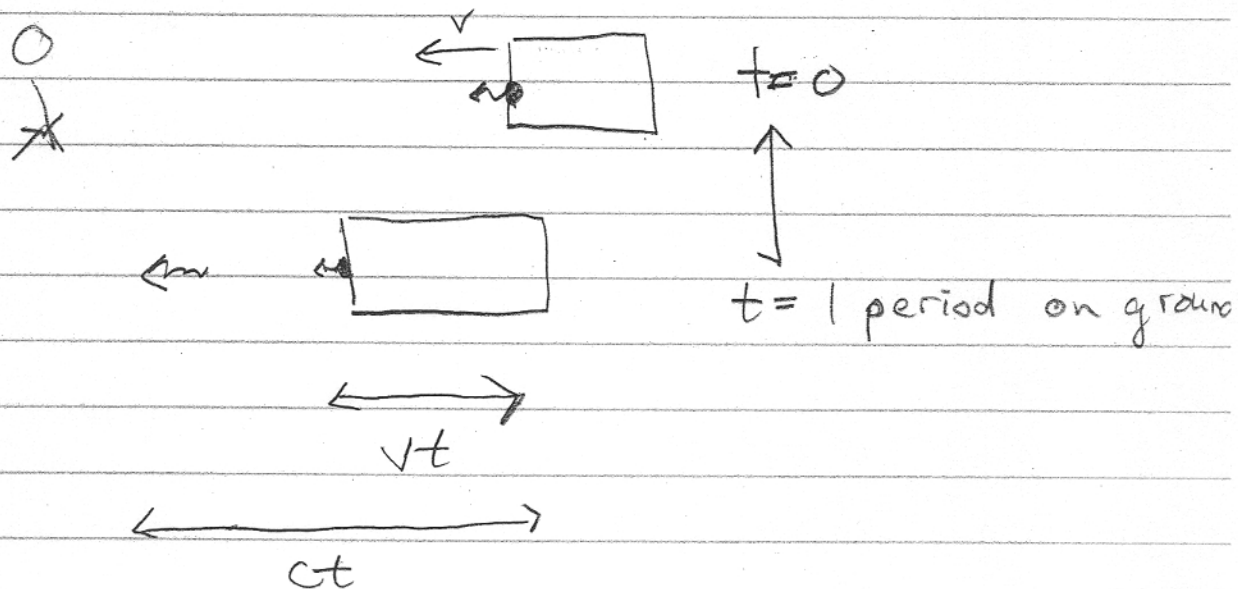 v
t=0
t= 1 period on groun
vt
ct